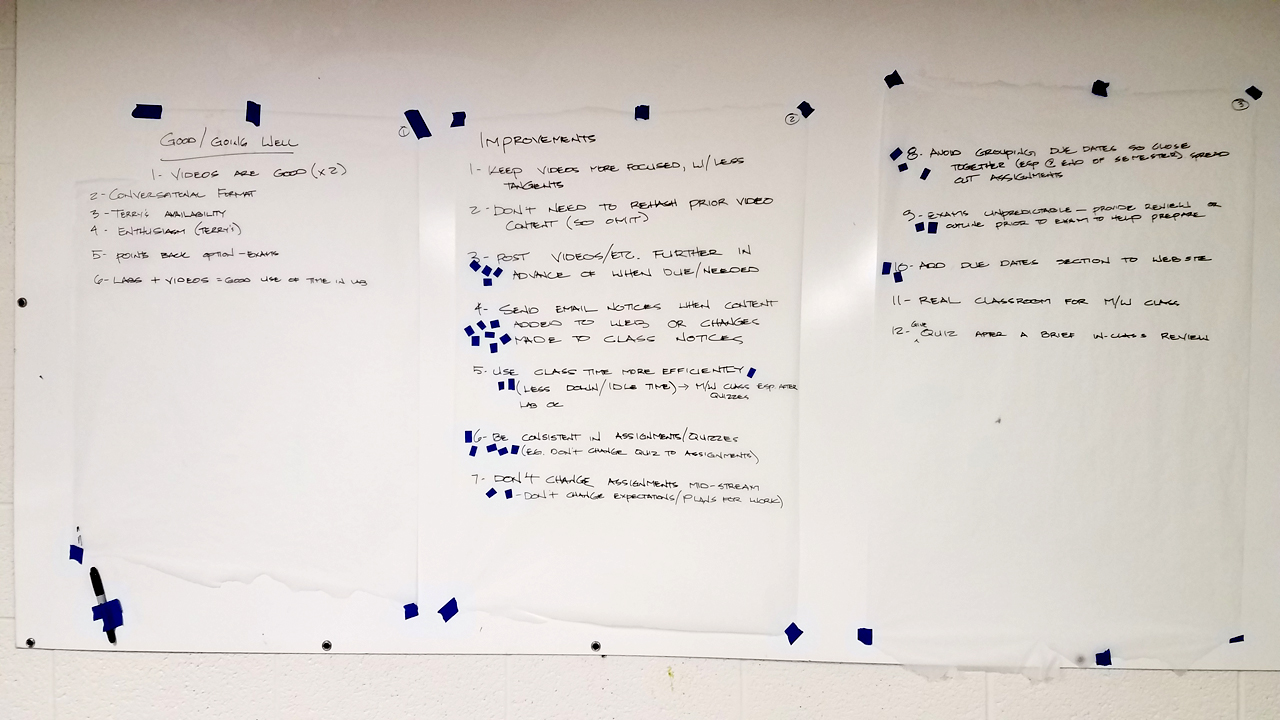 ①
GOOD/GOING WELL
1- VIDEOS ARE GOOD (X2)
2- CONVERSATIONAL FORMAT
3- TERRY'S AVAILABILITY
4- ENTHUSIASM (TERRY'S)
5- POINTS BACK OPTION - EXAMS
6- LABS + VIDEOS = GOOD USE OF TIME IN LAB
②
IMPROVEMENTS
1- KEEP VIDEOS MORE FOCUSED, W/LESS
TANGENTS
2- DON'T NEED TO REHASH PRIOR VIDEO
CONTENT (SO OMIT)
3- POST VIDEOS/ETC. FURTHER IN
ADVANCE OF WHEN DUE/NEEDED
4- SEND EMAIL NOTICES WHEN CONTENT
ADDED TO WEB OR CHANGES
MADE TO CLASS NOTICES
5- USE CLASS TIME MORE EFFICIENTLY
(LESS DOWN/IDLE TIME) → M/W CLASS ESP. AFTER
QUIZZES
LAB OK
6- BE CONSISTENT IN ASSIGNMENTS/QUIZZES
(EG. DON'T CHANGE QUIZ TO ASSIGNMENTS)
7- DON'T CHANGE ASSIGNMENTS MID-STREAM
- DON'T CHANGE EXPECTATIONS/PLANS FOR WORK)
③
8- AVOID GROUPING DUE DATES SO CLOSE
TOGETHER (ESP @ END OF SEMESTER) SPREAD
OUT ASSIGNMENTS
9- EXAMS UNPREDICTABLE - PROVIDE REVIEW OR
OUTLINE PRIOR TO EXAM TO HELP PREPARE
10- ADD DUE DATES SECTION TO WEBSITE
11- REAL CLASSROOM FOR M/W CLASS
12- GIVE QUIZ AFTER A BRIEF IN-CLASS REVIEW